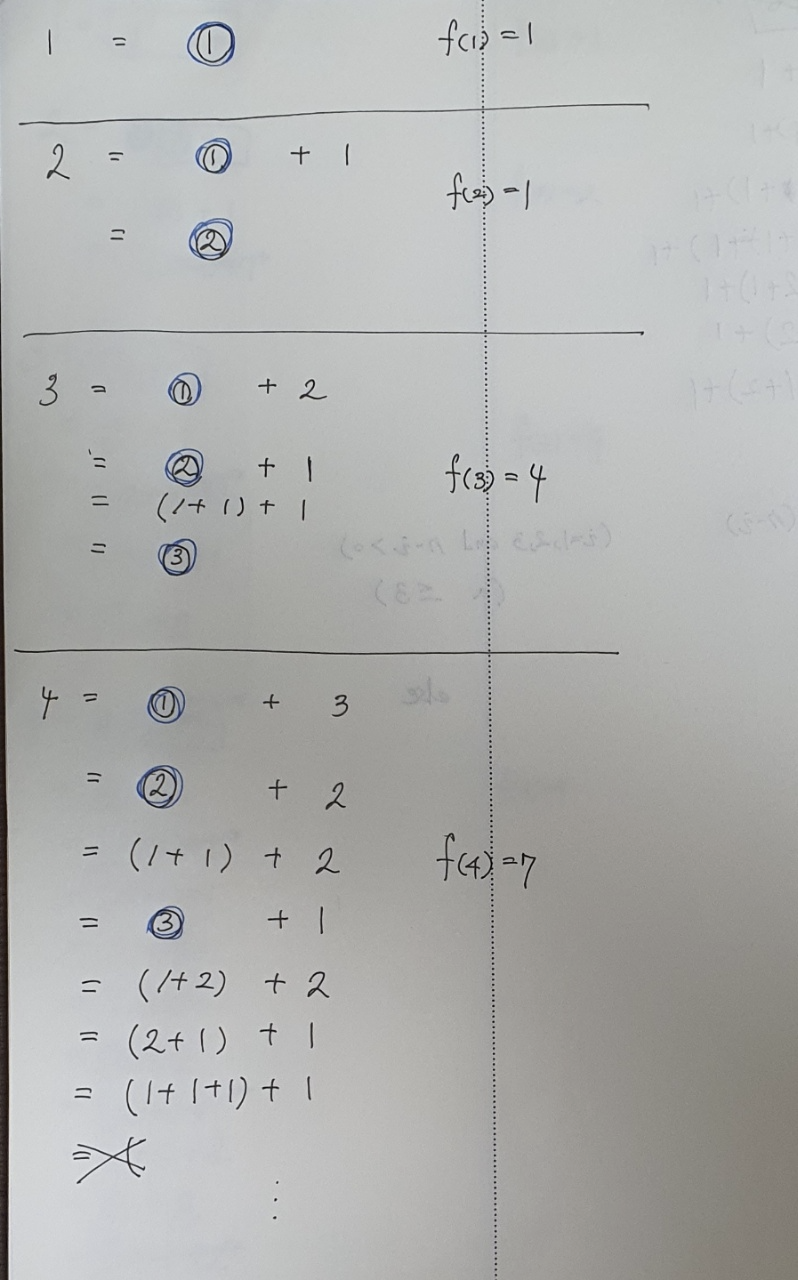 1 = ① f(1) = 1
2 = ① + 1
f(2) = 1
= ②
3 = ① + 2
= ② + 1 f(3) = 4
= (1+1) + 1
= ③
4 = ① + 3
= ② + 2
= (1+1) + 2 f(4) = 7
= ③ + 1
= (1+2) + 2
= (2+1) + 1
= (1+1+1) + 1
=
⋮